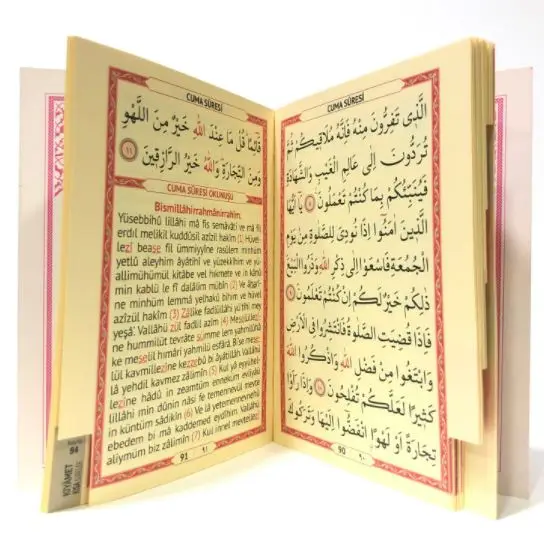 CUMA SÛRESİ
الَّذ۪ي تَفِرُّونَ مِنْهُ فَاِنَّهُ مُلَاق۪يكُمْ ثُمَّ
تُرَدُّونَ اِلٰى عَالِمِ الْغَيْبِ وَالشَّهَادَةِ
فَيُنَبِّئُكُمْ بِمَا كُنْتُمْ تَعْمَلُونَ ٨ يَٓا اَيُّهَا
الَّذ۪ينَ اٰمَنُٓوا اِذَا نُودِيَ لِلصَّلٰوةِ مِنْ يَوْمِ
الْجُمُعَةِ فَاسْعَوْا اِلٰى ذِكْرِ اللّٰهِ وَذَرُوا الْبَيْعَ
ذٰلِكُمْ خَيْرٌ لَكُمْ اِنْ كُنْتُمْ تَعْلَمُونَ ٩
فَاِذَا قُضِيَتِ الصَّلٰوةُ فَانْتَشِرُوا فِي الْاَرْضِ
وَابْتَغُوا مِنْ فَضْلِ اللّٰهِ وَاذْكُرُوا اللّٰهَ
كَث۪يرًا لَعَلَّكُمْ تُفْلِحُونَ ١٠ وَاِذَا رَاَوْا
تِجَارَةً اَوْ لَهْوًا انْفَضُّٓوا اِلَيْهَا وَتَرَكُوكَ
90 ٩٠
CUMA SÛRESİ
قَٓائِمًا قُلْ مَا عِنْدَ اللّٰهِ خَيْرٌ مِنَ اللَّهْوِ
وَمِنَ التِّجَارَةِ وَاللّٰهُ خَيْرُ الرَّازِق۪ينَ ١١
CUMA SÛRESİ OKUNUŞU
Bismillâhirrahmânirrahîm.
Yüsebbihû lillâhi mâ fis semâvâti ve mâ fil
erdıl melikil kuddûsil azîzil hakîm (1) Hüvel-
lezî bease fil ümmiyyîne rasûlem minhüm
yetlû aleyhim âyâtihî ve yüzekkîhim ve yü-
allimühümül kitâbe vel hikmete ve in kânû
min kablü le fî dalâlim mübîn (2) Ve âharî-
ne minhüm lemmâ yelhakû bihim ve hüvel
azîzül hakîm (3) Zâlike fadlüllâhi yü'tîhi mey
yeşâ'. Vallâhü zül fadlil azîm (4) Meselüllezî-
ne hummilüt tevrâte sümme lem yahmilûhâ
ke meselil hımâri yahmilü esfârâ. Bi'se mese-
lül kavmillezîne kezzebû bi âyâtillâh. Vallâhü
lâ yehdil kavmez zâlimîn (5) Kul yâ eyyühel-
lezîne hâdû in zeamtüm enneküm evliyâü
lillâhi min dûnin nâsi fe temennevül mevte
in küntüm sâdikîn (6) Ve lâ yetemennevnehû
ebedem bi mâ kaddemed eydîhim. Vallâhü
alîymüm biz zâlimîn (7) Kul innel mevtellezî
91 ٩١
94
KIYÂMET